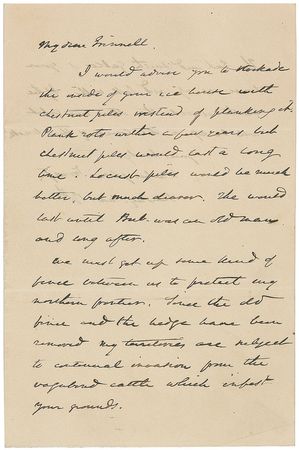 My dear Grinnell.
I would advise you to stockade
the inside of your ice house with
chestnut piles instead of planking it.
Plank rots within a few years but
chestnut piles would last a long
time. Locust piles would be much
better, but much dearer. The would
last until Bub. was an old man
and long after.
We must get up some kind of
fence between us to protect my
northern frontier. Since the old
fence and the hedge have been
removed my territories are subject
to continual invasion from the
vagabond cattle which infest
your grounds.